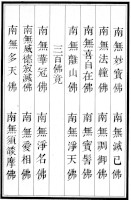 南無妙寶佛　南無滅已佛
南無法幢佛　南無調御佛
南無喜自在佛　南無寶髻佛
南無離山佛　南無淨天佛
三百佛竟
南無華冠佛　南無淨名佛
南無威德寂滅佛　南無愛相佛
南無多天佛　南無須燄摩佛